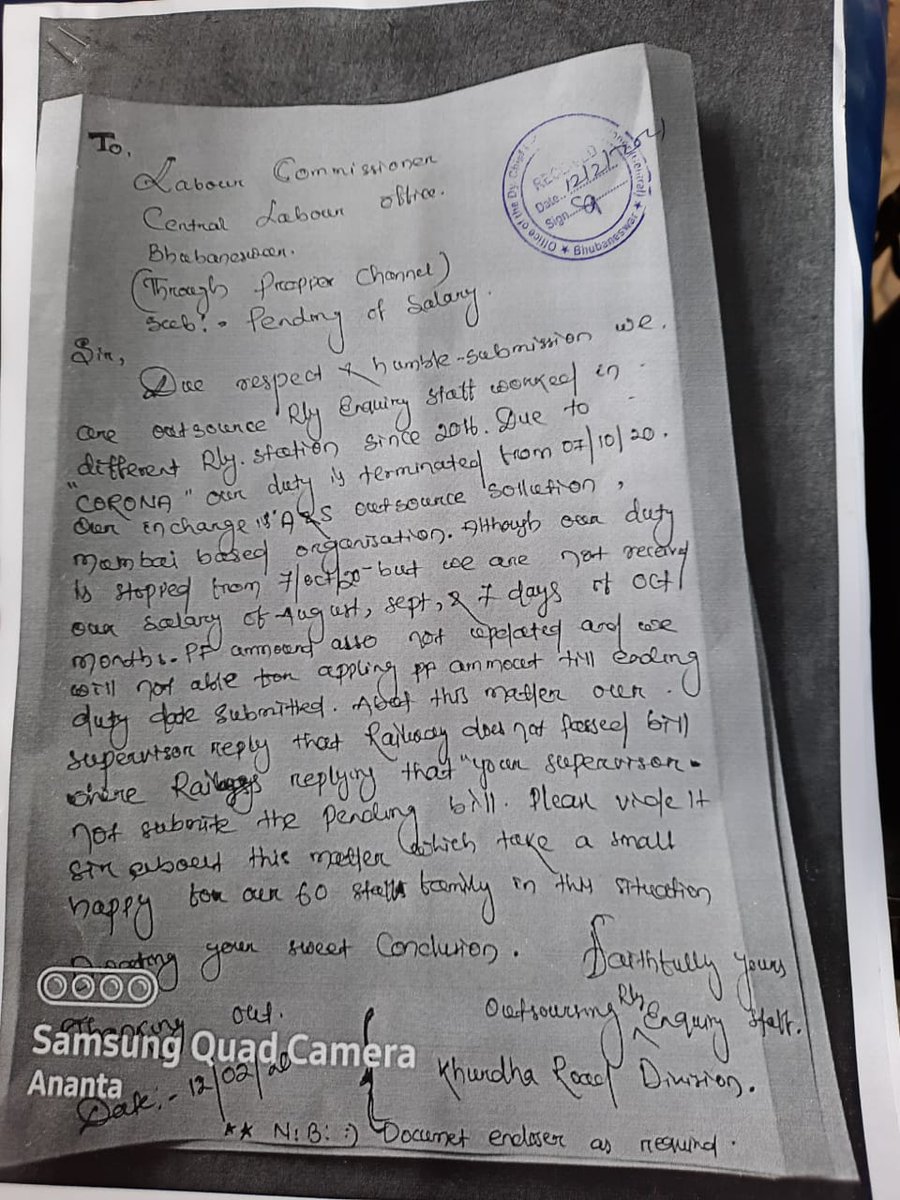 To,
Labour Commissioner
Central Labour office.
Bhubaneswar.
(Through Propper Channel)
Sub:- Pending of Salary.
Sir,
Due respect & humble-submission we.
are outsource Rly Enquiry staff worked in
different Rly. station since 2016. Due to
"CORONA" our duty is terminated from 07/10/20.
our incharge is A&S outsource sollution,
Mambai based organisation. Although our duty
is stopped from 7/oct/20 but we are not received
our salary of August, sept, & 7 days of oct/
months. PF ammount also not updated and we
will not able for appling pf ammount till ending
duty date submitted. About this matter our.
supervisor reply that Railway does not passed bill
where Railways replying that "your supervisor
not submite the pending bill. Please vide it
sir about this matter which take a small
happy for our 60 staffs family in this situation
your sweet Conclusion. Faithfully yours
out. Outsourcing Rly Enquiry staff.
Date:- 12/02/20 Khurdha Road Division.
** N:B: :) Documet encloser as requird.
Office of the Dy. Chief
Bhubaneswar
RECEIVED
Date. 12/2/2021
Sign.
Samsung Quad Camera
Ananta